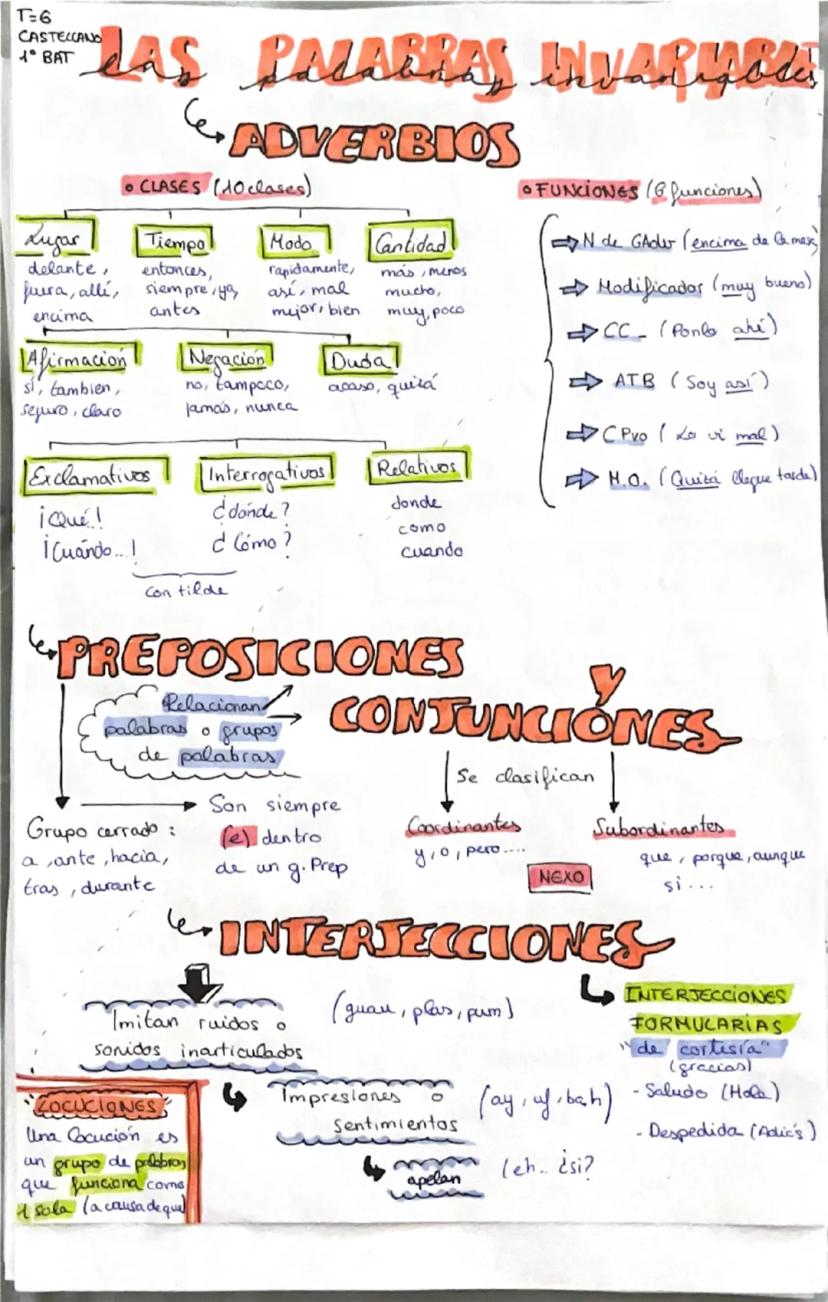 T=6
CASTELLANO
1º BAT
LAS PALABRAS INVARIABLES
las palabras invariables
ADVERBIOS
CLASES (10 clases)
Lugar
delante,
fuera, allí,
encima
Tiempo
entonces,
siempre, ya,
antes
Modo
rapidamente,
así, mal
mejor, bien
Cantidad
más, menos
mucho,
muy, poco
Afirmación
sí, tambien,
seguro, claro
Negación
no, tampoco,
jamás, nunca
Duda
acaso, quizá
Exclamativos
¡Qué!
¡Cuándo...!
Interrogativos
¿dónde?
¿Cómo?
con tilde
Relativos
donde
como
cuando
FUNCIONES (6 funciones)
N de GAdv (encima de la mesa)
Modificador (muy bueno)
CC - (Ponlo ahí)
ATB (Soy así)
C Pvo (Lo vi mal)
M.O. (Quizá llegue tarde)
PREPOSICIONES
y
CONJUNCIONES
Relacionan
palabras o grupos
de palabras
Grupo cerrado:
a, ante, hacia,
tras, durante
Son siempre
(e) dentro
de un g. Prep
Se clasifican
Coordinantes
y, o, pero....
Subordinantes
que, porque, aunque
si...
NEXO
INTERJECCIONES
Imitan ruidos o
sonidos inarticulados
(guau, plas, pum)
Impresiones o
Sentimientos
(ay, uf, bah)
apelan
(eh.. ¿si?
INTERJECCIONES
FORMULARIAS
"de cortisía"
(gracias)
- Saludo (Hola)
- Despedida (Adiós)
"LOCUCIONES"
Una locución es
un grupo de palabras
que funciona como
1 sola (a causa de que)